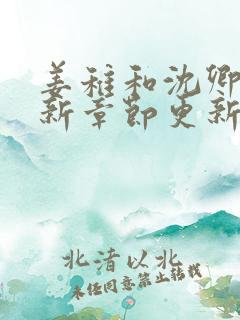 姜稚和沈卿
新章节更新
北渚以北
未经同意禁止转载